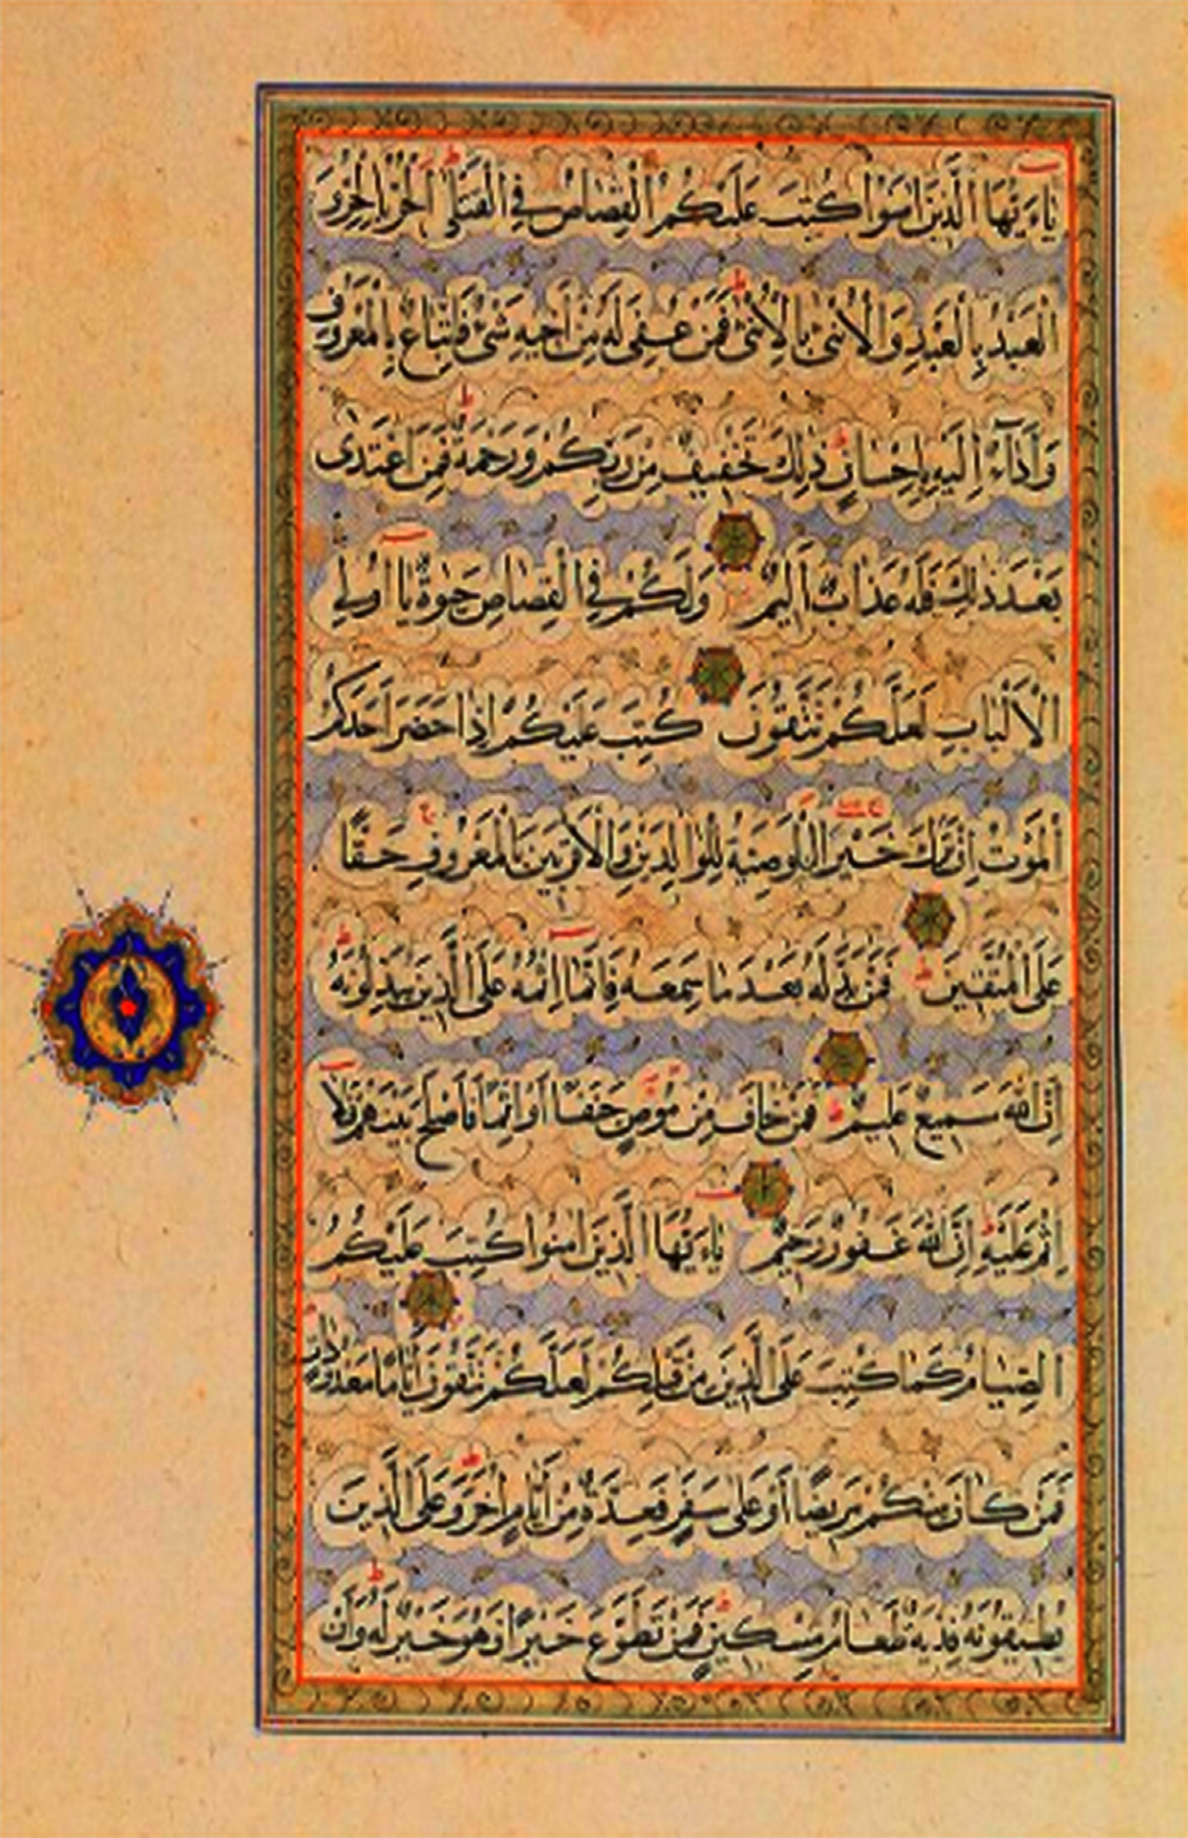 ياءَيُّهَا الَّذِينَ اٰمَنُوا كُتِبَ عَلَيْكُمُ الْقِصَاصُ فِي الْقَتْلٰى اَلْحُرُّ بِالْحُرِّ وَ
الْعَبْدُ بِالْعَبْدِ وَالْاُنْثٰى بِالْاُنْثٰى فَمَنْ عُفِيَ لَهُ مِنْ اَخِيهِ شَيْءٌ فَاتِّبَاعٌ بِالْمَعْرُوفِ
وَاَدَآءٌ اِلَيْهِ بِاِحْسَانٍ ذٰلِكَ تَخْفِيفٌ مِنْ رَبِّكُمْ وَرَحْمَةٌ فَمَنِ اعْتَدٰى
بَعْدَ ذٰلِكَ فَلَهُ عَذَابٌ اَلِيمٌ وَلَكُمْ فِي الْقِصَاصِ حَيٰوةٌ يَا اُولِي
الْاَلْبَابِ لَعَلَّكُمْ تَتَّقُونَ كُتِبَ عَلَيْكُمْ اِذَا حَضَرَ اَحَدَكُمُ
الْمَوْتُ اِنْ تَرَكَ خَيْرًا الْوَصِيَّةُ لِلْوَالِدَيْنِ وَالْاَقْرَبِينَ بِالْمَعْرُوفِ حَقًّا
عَلَى الْمُتَّقِينَ فَمَنْ بَدَّلَهُ بَعْدَ مَا سَمِعَهُ فَاِنَّمَا اِثْمُهُ عَلَى الَّذِينَ يُبَدِّلُونَهُ
اِنَّ اللّٰهَ سَمِيعٌ عَلِيمٌ فَمَنْ خَافَ مِنْ مُوصٍ جَنَفًا اَوْ اِثْمًا فَاَصْلَحَ بَيْنَهُمْ فَلَا
اِثْمَ عَلَيْهِ اِنَّ اللّٰهَ غَفُورٌ رَحِيمٌ ياءَيُّهَا الَّذِينَ اٰمَنُوا كُتِبَ عَلَيْكُمُ
الصِّيَامُ كَمَا كُتِبَ عَلَى الَّذِينَ مِنْ قَبْلِكُمْ لَعَلَّكُمْ تَتَّقُونَ اَيَّامًا مَعْدُودَاتٍ
فَمَنْ كَانَ مِنْكُمْ مَرِيضًا اَوْ عَلٰى سَفَرٍ فَعِدَّةٌ مِنْ اَيَّامٍ اُخَرَ وَعَلَى الَّذِينَ
يُطِيقُونَهُ فِدْيَةٌ طَعَامُ مِسْكِينٍ فَمَنْ تَطَوَّعَ خَيْرًا فَهُوَ خَيْرٌ لَهُ وَاَنْ